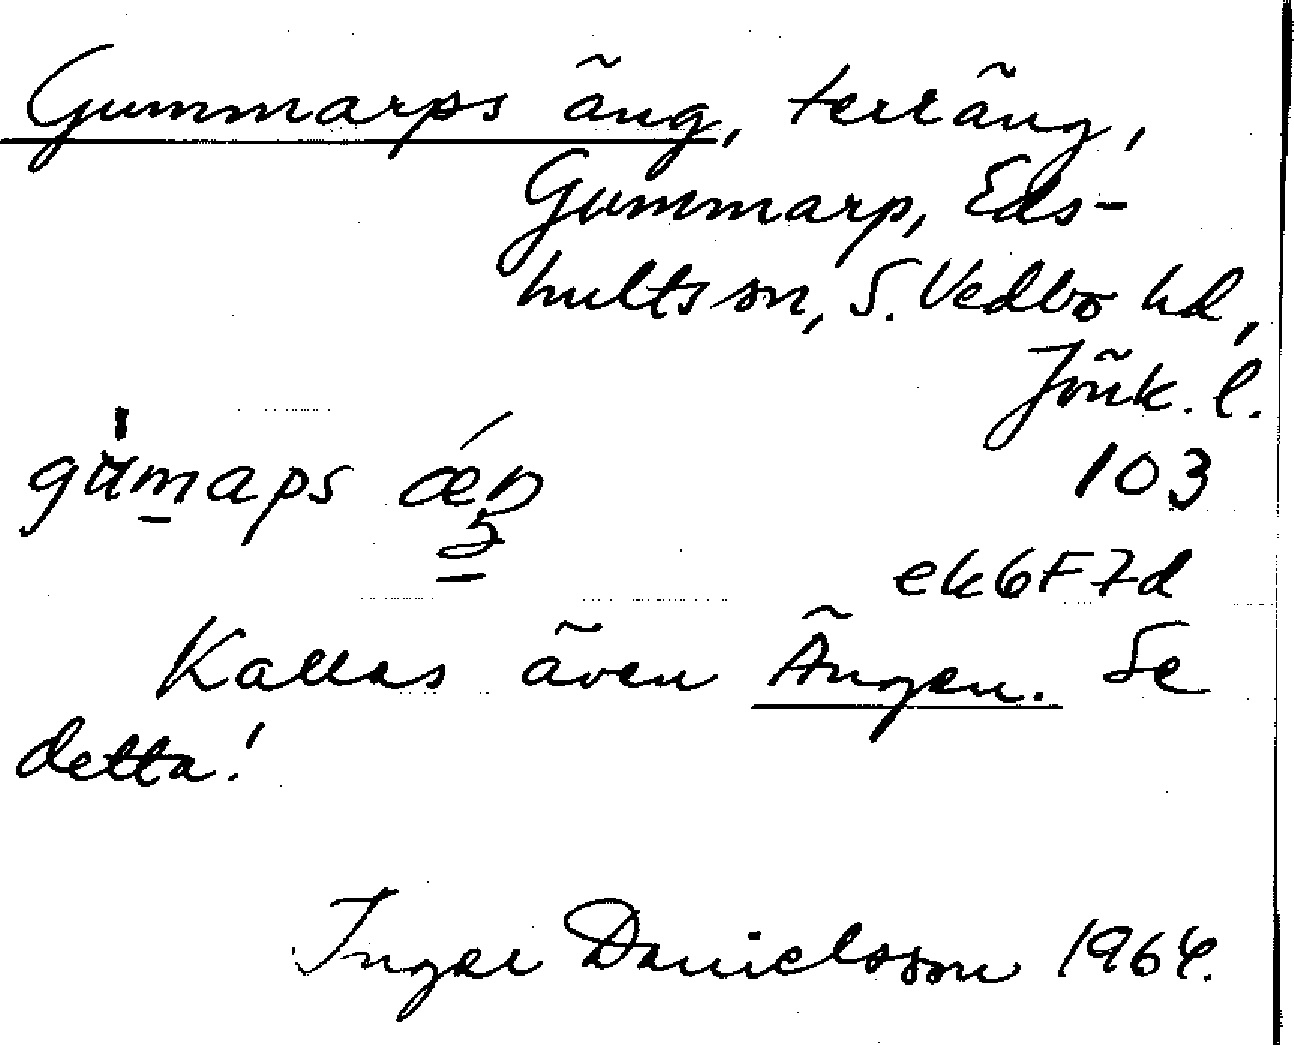 Gummarps äng, terräng,
Gummarp, Eds-
hults sn, S. Vedbo hd,
Jönk. l.
103
ek6F7d
Kallas även Ängen. Se
detta!
Inger Danielsson 1964.